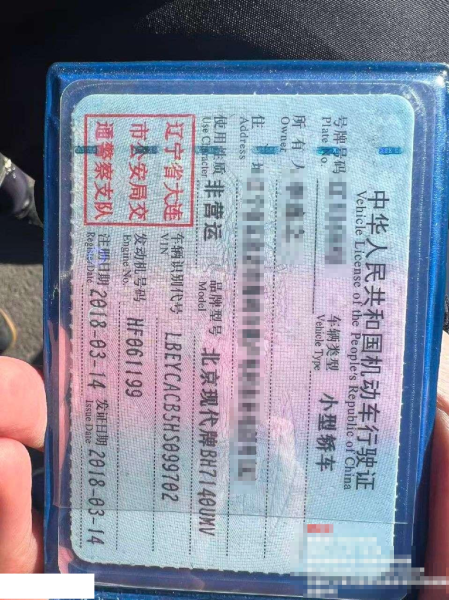 中华人民共和国机动车行驶证
Vehicle License of the People's Republic of China
号牌号码
Plate No.
车辆类型 小型轿车
Vehicle Type
所有人
Owner
住址
Address
使用性质 非营运
Use Character
品牌型号 北京现代牌BH7140UMV
Model
辽宁省大连
市公安局交
通警察支队
车辆识别代号 LBEYCACB5HS099702
VIN
发动机号码 HF061199
Engine No.
注册日期 2018-03-14 发证日期 2018-03-14
Register Date Issue Date